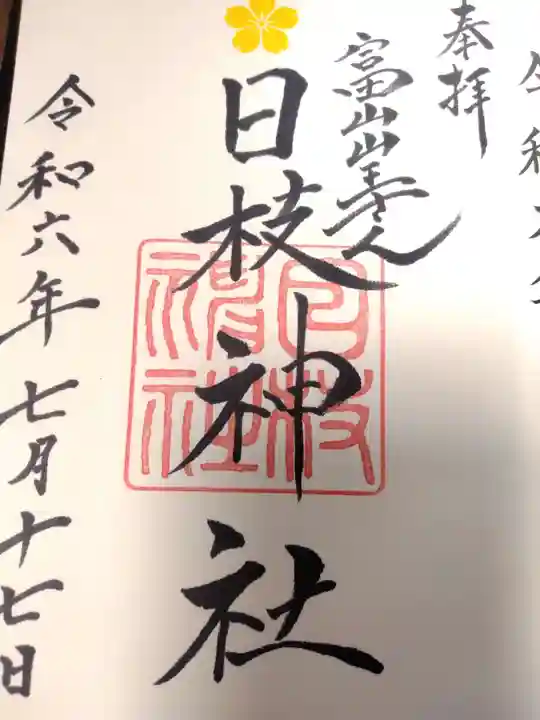 奉拝
富山山王さん
日枝神社
日枝神社
令和六年七月十七日